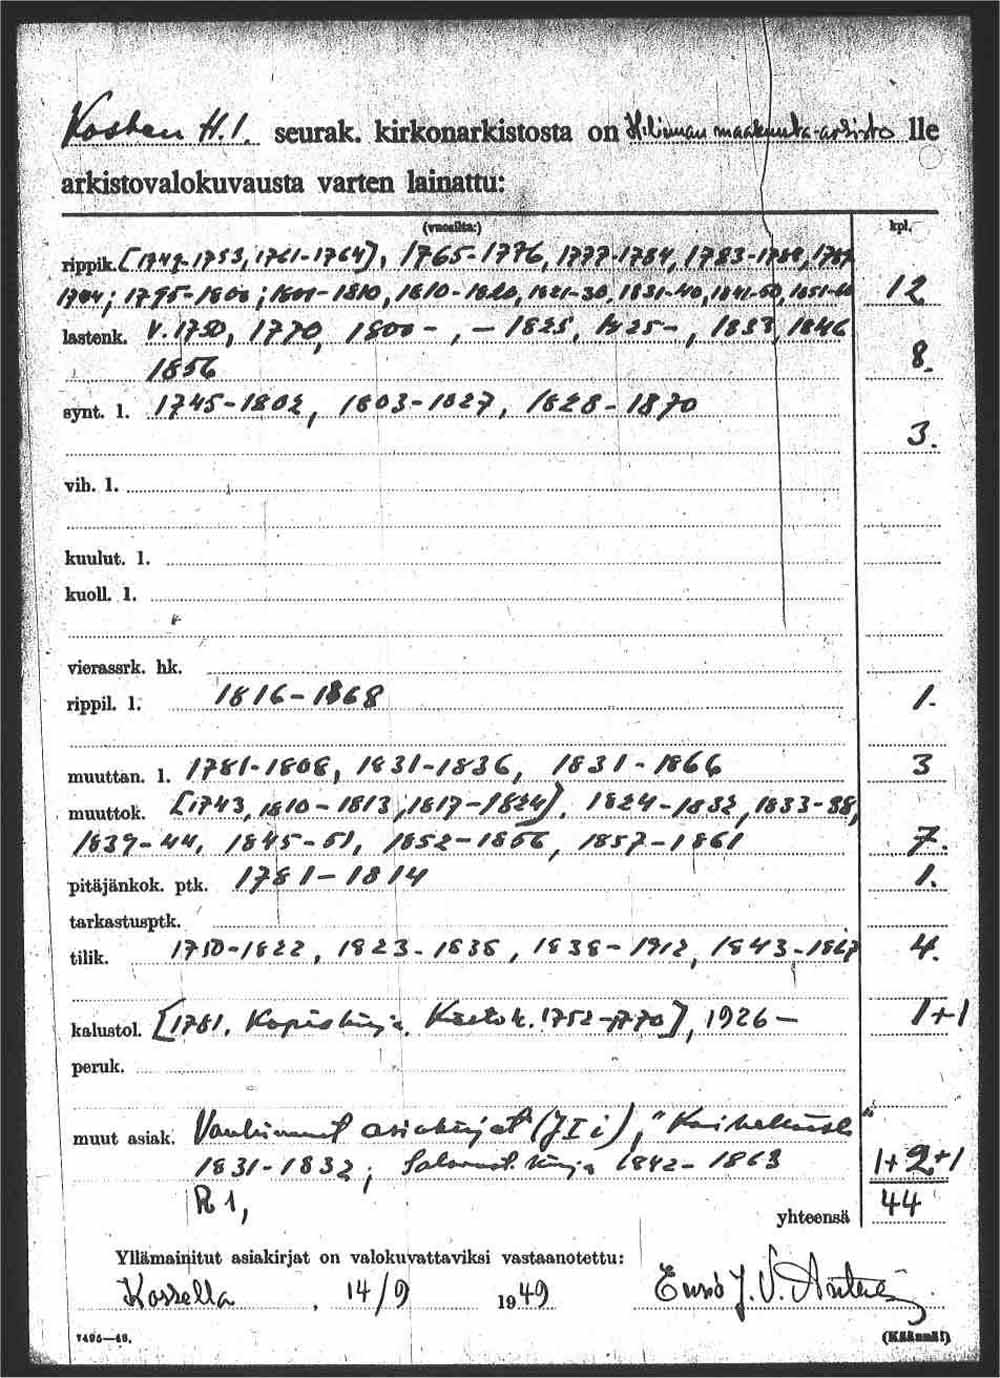 Kosken H.l. seurak. kirkonarkistosta on Hämeenlinnan maakunta-arkisto lle
arkistovalokuvausta varten lainattu:
(vuosilta:) kpl.
rippik. [1747-1753, 1761-1764], 1765-1776, 1777-1784, 1783-1788, 1789
1794; 1795-1800; 1801-1810, 1810-1820, 1821-30, 1831-40, 1841-50, 1851-60 12
lastenk. V. 1750, 1770, 1800 - , - 1825, 1825 - , 1833, 1846
1856 8.
synt. l. 1745-1802, 1803-1827, 1828-1870
3.
vih. l.
kuulut. l.
kuoll. l.
vierassrk. hk.
rippil. l. 1816-1868 1.
muuttan. l. 1781-1808, 1831-1836, 1831-1866 3
muuttok. [1743, 1810-1813, 1817-1824], 1824-1832, 1833-38,
1839-44, 1845-51, 1852-1856, 1857-1861 7.
pitäjänkok. ptk. 1781-1814 1.
tarkastusptk.
tilik. 1750-1822, 1823-1838, 1838-1912, 1843-1867 4.
kalustol. [1781, Kopiokirja, 1752-1770], 1926- 1+1
peruk.
muut asiak. Vanhimmat asiakirjat (J I i), "
1831-1832; kirja 1842-1863 1+2+1
R 1,
yhteensä 44
Yllämainitut asiakirjat on valokuvattaviksi vastaanotettu:
Koskella, 14/9 1949 J. V.
7495—48. (Käännä!)